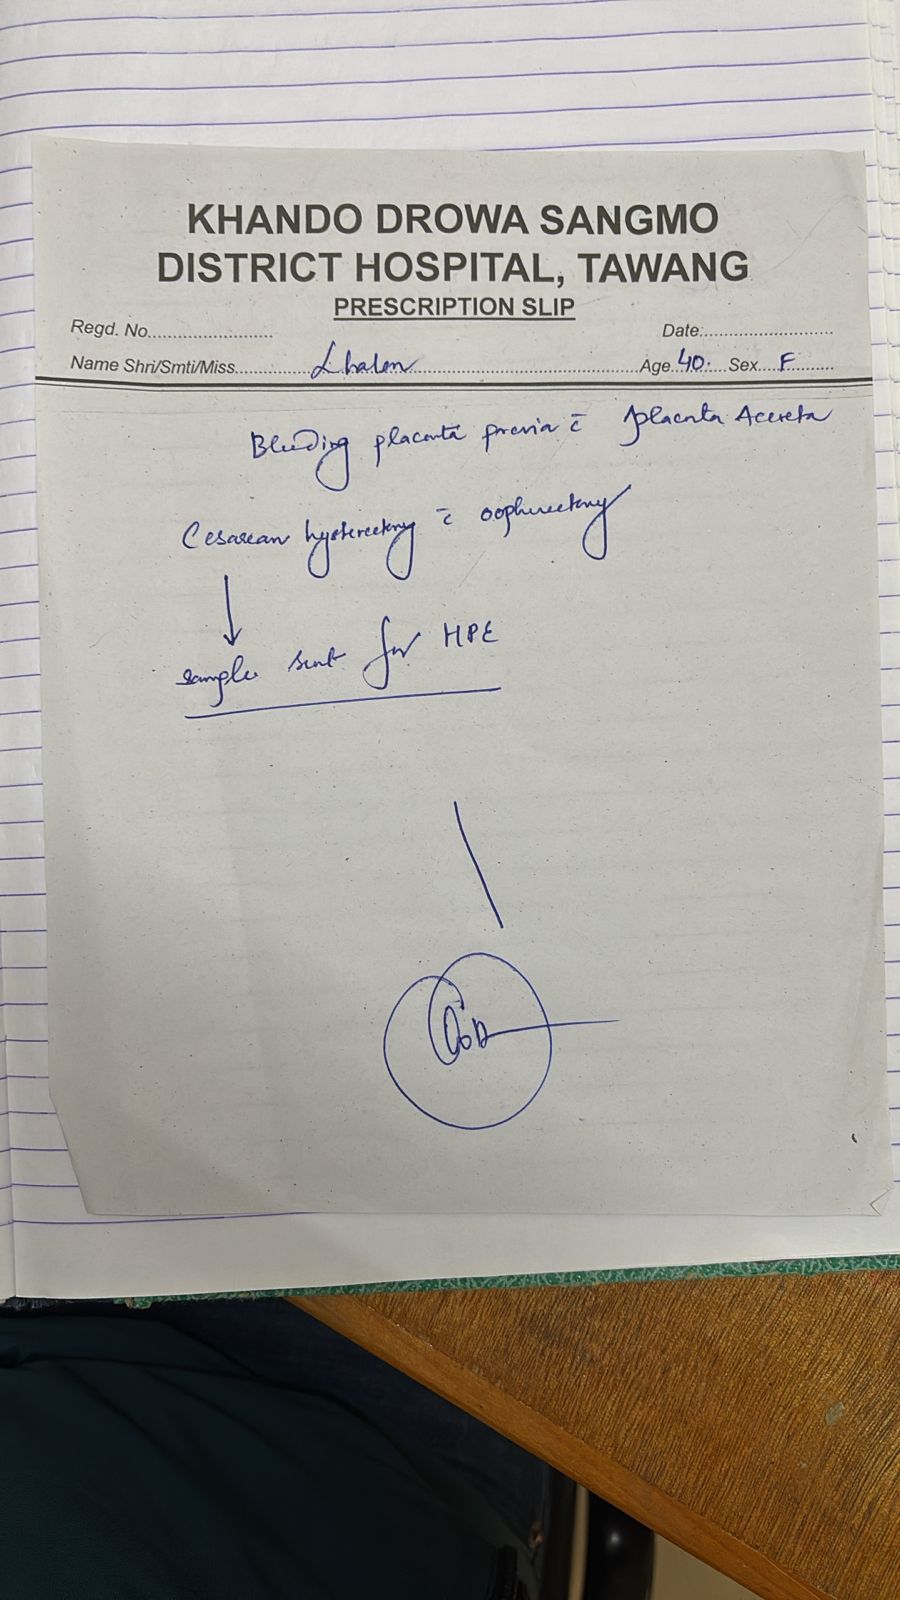 KHANDO DROWA SANGMO
DISTRICT HOSPITAL, TAWANG
PRESCRIPTION SLIP
Regd. No.......................... Date:..........................
Name Shri/Smti/Miss.................. Age 40. Sex F
Bleeding placenta previa c̄ placenta Accreta
Cesarean hysterectomy c̄ oophorectomy
↓
sample sent for HPE